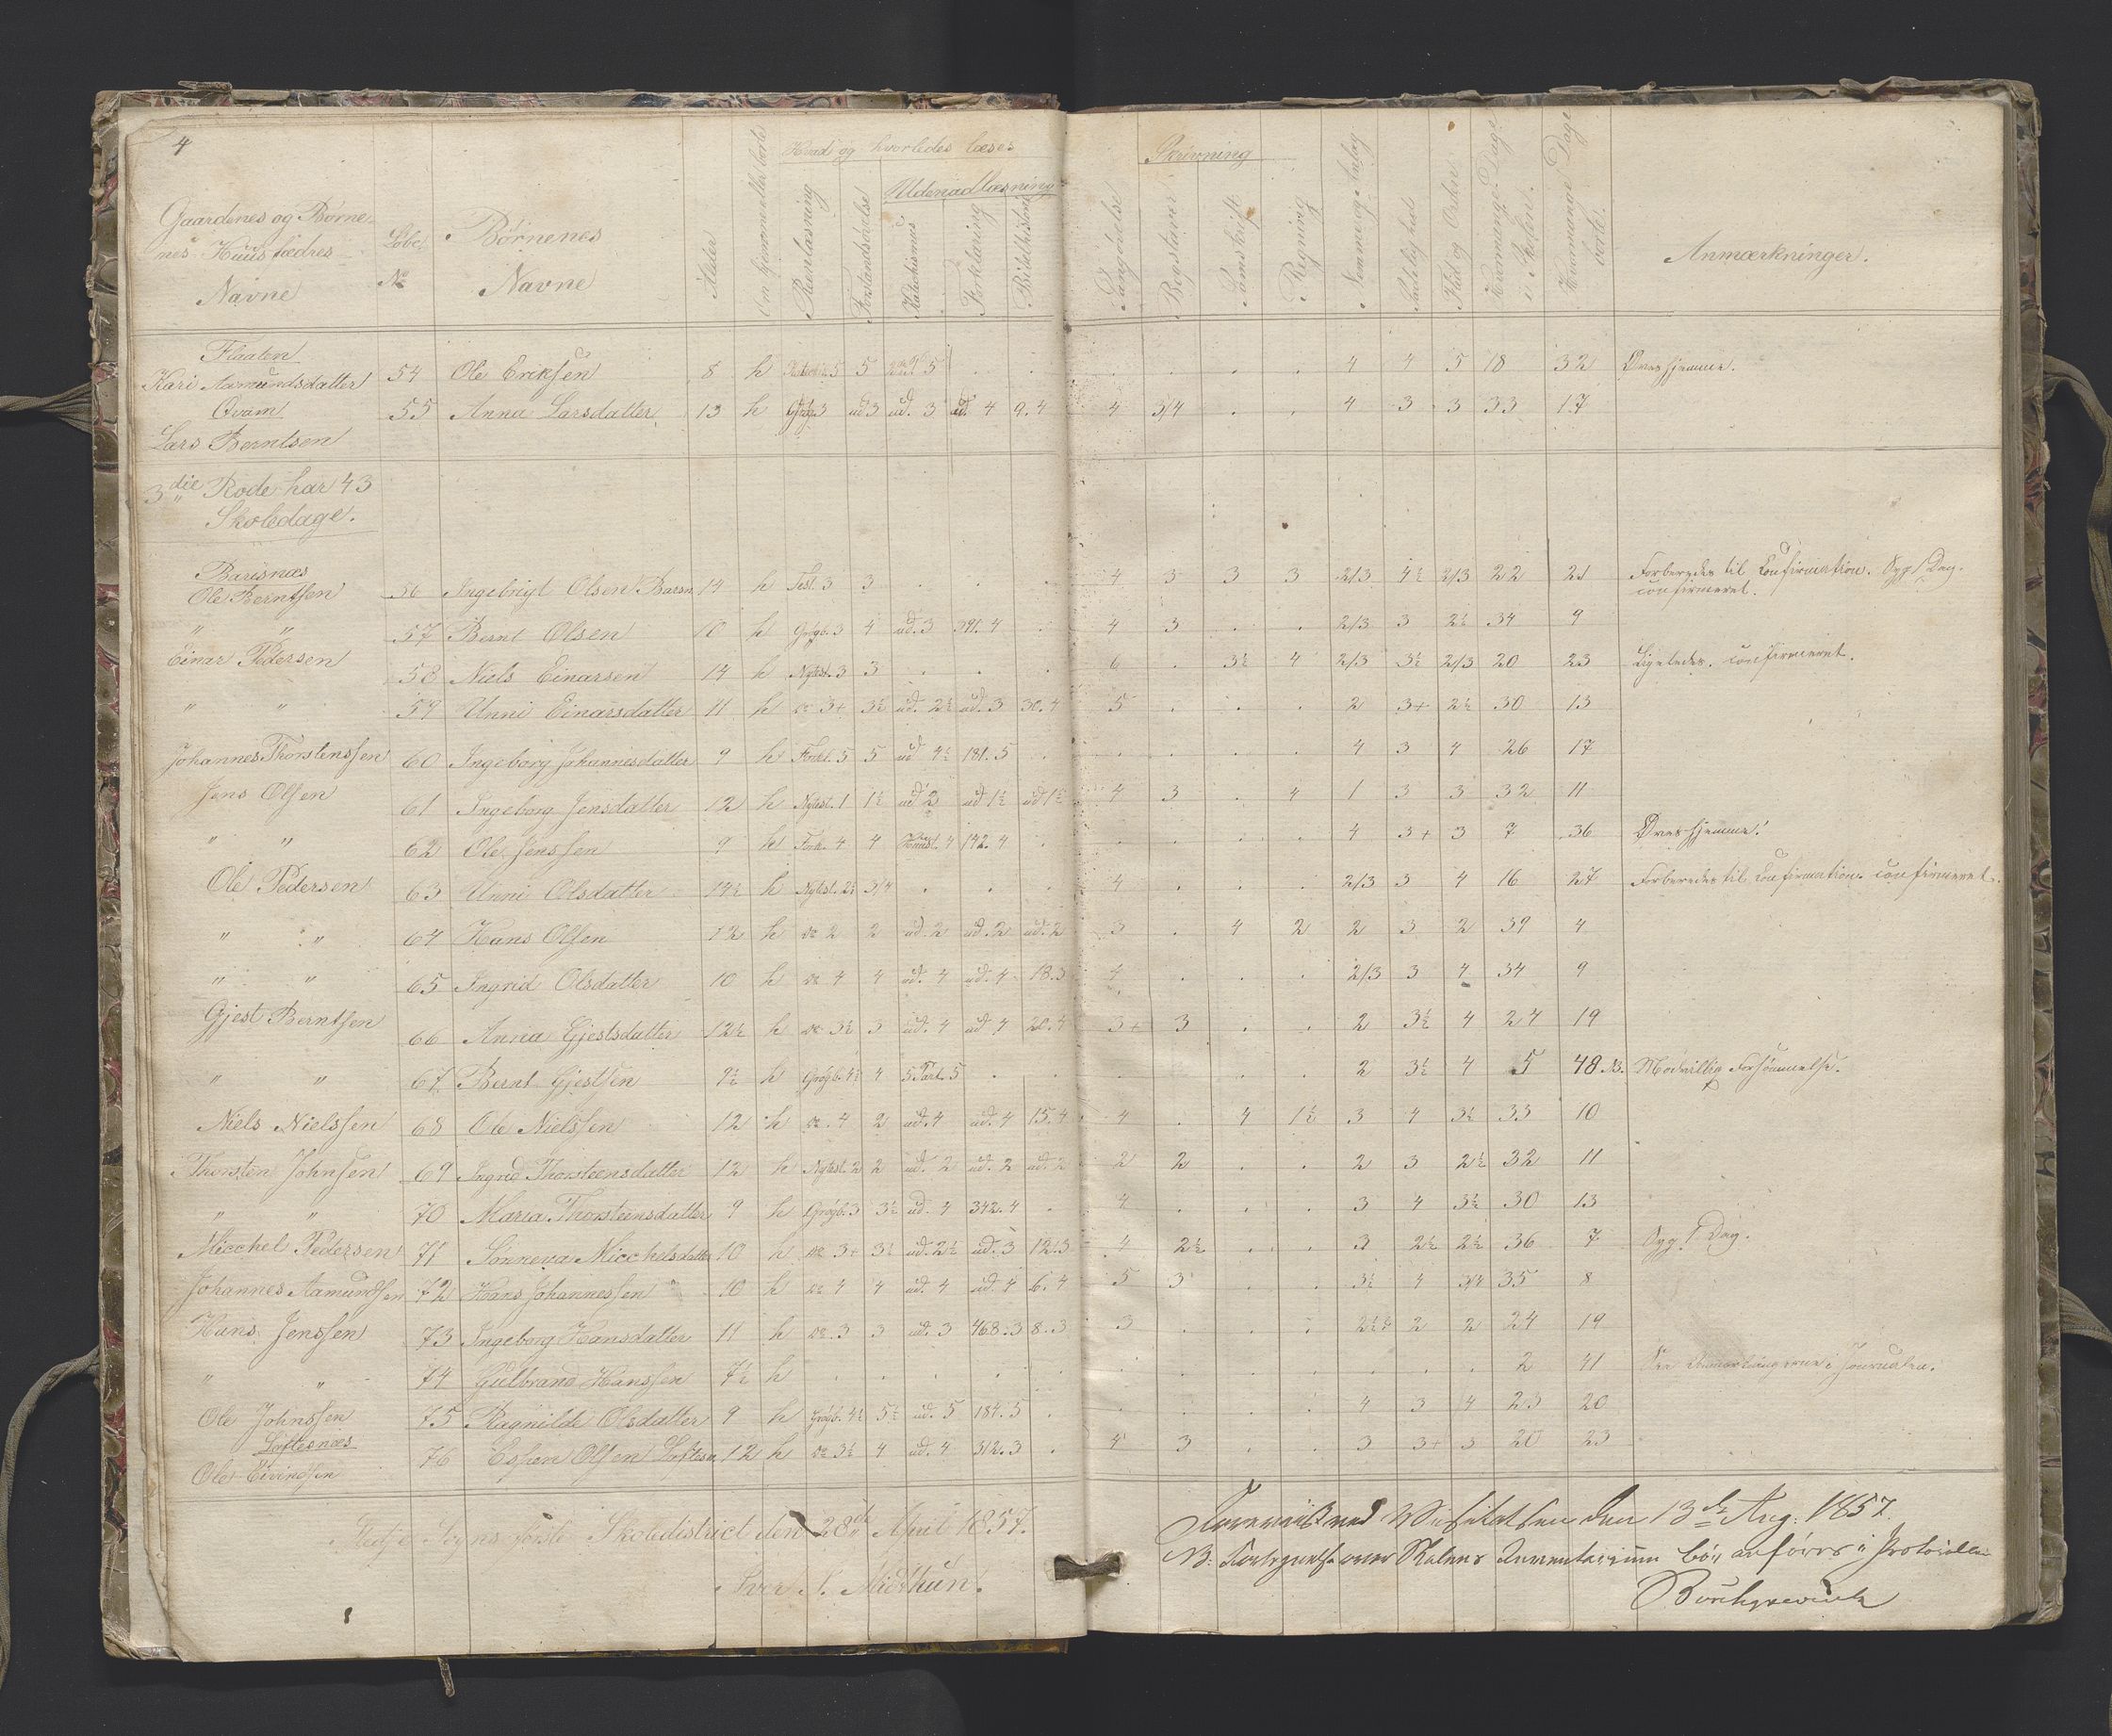 4
Gaardenes og Børne-
nes Huusfædres
Navne
Løbe
No
Børnenes
Navne
Alder
Om hjemme eller borte
Hvad og hvorledes læses
Reenlæsning
Forstandsövelse
Udenadlæsning
Katechismus
Forklaring
Bibelhistorie
Sangövelse
Skrivning
Bogstaver
Regning
Nemme og Anlæg
Sædelighed
Flid og Orden
Hvormange Dage
i Skolen.
Hvormange Dage
borte.
Anmærkninger.
Flaaten
Kari Aamundsdatter 54 Ole Eriksen 8 h 5 5 5 . . . . . . 4 4 5 18 32 Øves hjemme.
Qvam 55 Anna Larsdatter 13 h 3 ud 3 ud. 3 ud. 4 9. 4 4 3/4 . . 4 3 3 33 17
Lars Berntsen
3die Rode har 43
Skoledage.
Barsnæs
Ole Berntsen 56 Ingebrigt Olsen Barsn. 14 h Test. 3 3 . . . 4 3 3 3 2/3 4½ 2/3 22 21 Forberedes til Confirmation. Syg 1 Dag.
confirmeret.
" " 57 Bernt Olsen 10 h 3 4 ud. 3 391. 4 . 4 3 . . 2/3 3 2½ 34 9
Einar Pedersen 58 Niels Einarsen 14 h Nytest. 3 3 . . . 6 . 3½ 4 2/3 3½ 2/3 20 23 Ligeledes. confirmeret.
" " 59 Unni Einarsdatter 11 h do 3+ 3½ ud. 2½ ud. 3 30. 4 5 . . . 2 3+ 2½ 30 13
Johannes Thorstenssen 60 Ingeborg Johannesdatter 9 h Forkl. 5 5 ud 4½ 181. 5 . . . . . 4 3 4 26 17
Jens Olsen 61 Ingeborg Jensdatter 12 h Nytest. 1 1½ ud 2 ud 1½ ud 1½ 4 3 . 4 1 3 3 32 11
" " 62 Ole Jenssen 9 h Fork. 4 4 4 142. 4 . . . . . 4 3+ 3 7 36 Øves hjemme!
Ole Pedersen 63 Unni Olsdatter 14½ h Nytest. 2½ 3/4 . . . 4 . . . 2/3 3 4 16 27 Forberedes til Confirmation. confirmeret.
" " 64 Hans Olsen 12 h do 2 2 ud. 2 ud. 2 ud. 2 3 . 4 2 2 3 2 39 4
" " 65 Ingrid Olsdatter 10 h do 4 4 ud. 4 ud. 4 18. 3 4 . . . 2/3 3 4 34 9
Gjest Berntsen 66 Anna Gjestsdatter 12½ h do 3½ 3 ud. 4 ud 4 20. 4 3+ 3 . . 2 3½ 4 24 19
" " 67 Bernt Gjestsen 9½ h 4½ 4 5 Part. 5 . . . . . . 2 3½ 4 5 48 NB. Modvillig Forsømmelse.
Niels Nielssen 68 Ole Nielssen 12 h do. 4 2 ud. 4 ud. 4 15. 4 4 . 4 1½ 3 4 3½ 33 10
Thorsten Johnsen 69 Ingrid Thorsteensdatter 12 h Nytest. 2 2 ud. 2 ud. 2 ud. 2 2 2 . . 2 3 2½ 32 11
" " 70 Maria Thorsteensdatter 9 h 3 3½ ud. 4 342. 4 . 4 . . . 3 4 3½ 30 13
Micchel Pedersen 71 Sönneva Micchelsdatter 10 h do 3+ 3½ ud. 2½ ud. 3 12. 3 4 2½ . . 3 2½ 2½ 36 7 Syg 1 Dag.
Johannes Aamundsen 72 Hans Johannessen 10 h do 4 4 ud. 4 ud. 4 6. 4 5 3 . . 3½ 4 3/4 35 8
Hans Jenssen 73 Ingeborg Hansdatter 11 h do. 3 3 ud. 3 468. 3 8. 3 3 . . . 2 2 24 19
" " 74 Gulbrand Hanssen 7½ h . . . . . . . . . . . . 2 41
Ole Johnssen 75 Ragnilde Olsdatter 9 h 4½ 5½ ud. 5 184. 5 . . . . . 4 3 4 23 20
Loftesnæs
Ole Eivindsen 76 Espen Olsen Loftesn. 12 h do 3½ 4 ud. 4 312. 3 . 4 3 . . 3 3+ 3 20 23
Sogns første Skoledistrict den 28de April 1857.
Iver S. Midthun.
Foreviist ved Visitatsen den 13de Aug: 1857.
NB: Fortegnelse over Skolens Inventarium bör anföres i Protocollen
Borchgrevink